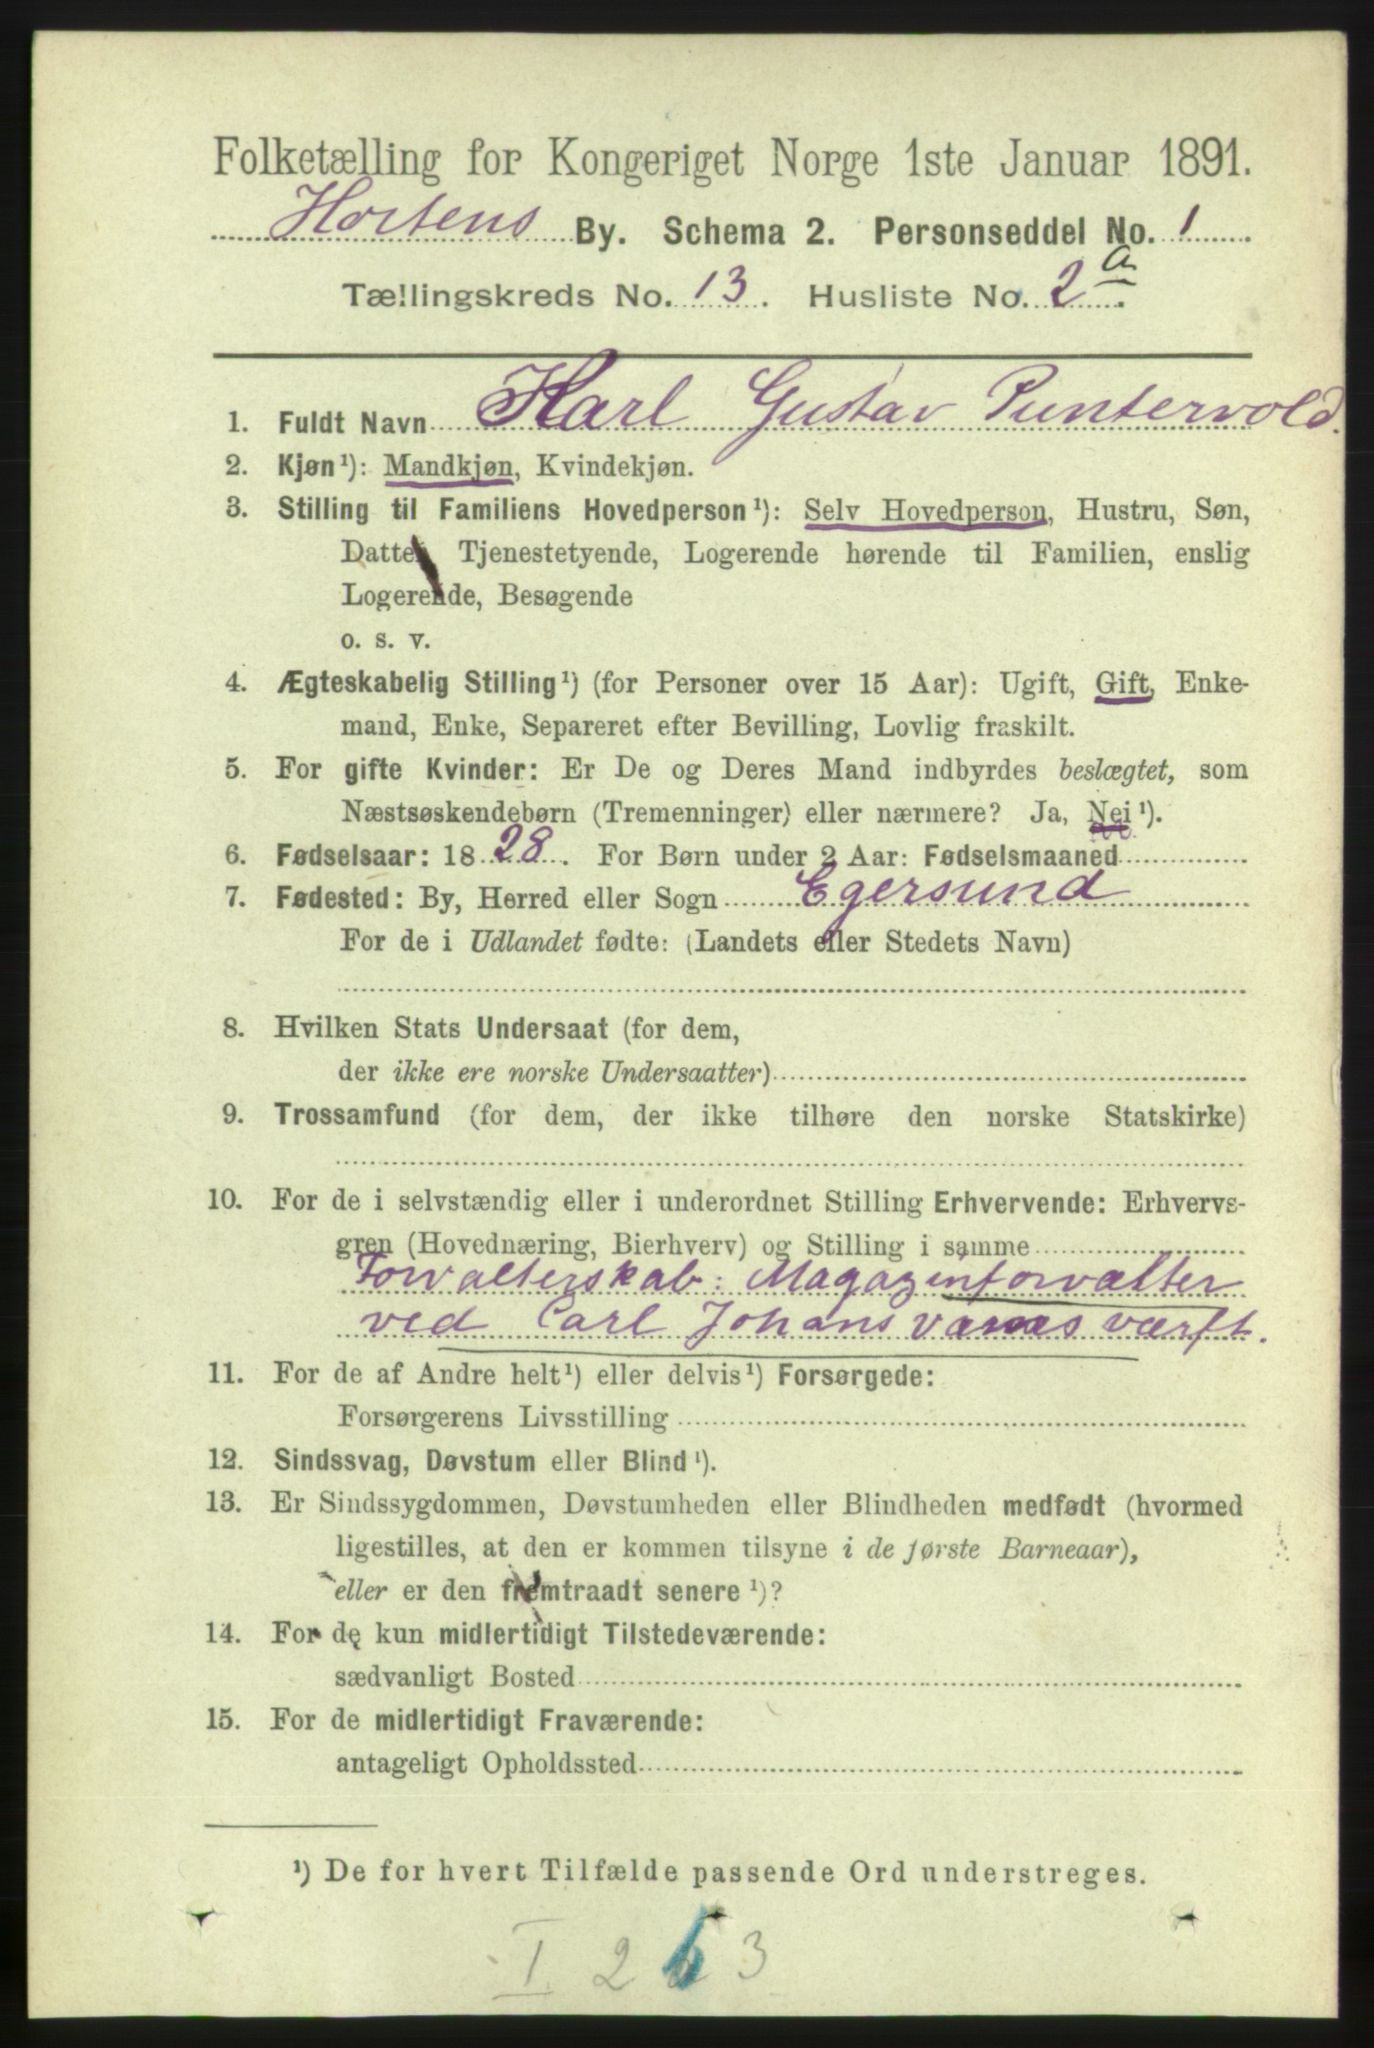 Folketælling for Kongeriget Norge 1ste Januar 1891.
Hortens By. Schema 2. Personseddel No. 1
Tællingskreds No. 13. Husliste No. 2a.
1. Fuldt Navn Karl Gustav Puntervold.
2. Kjøn¹): Mandkjøn, Kvindekjøn.
3. Stilling til Familiens Hovedperson¹): Selv Hovedperson, Hustru, Søn,
Datter Tjenestetyende, Logerende hørende til Familien, enslig
Logerende, Besøgende
o. s. v.
4. Ægteskabelig Stilling¹) (for Personer over 15 Aar): Ugift, Gift, Enke-
mand, Enke, Separeret efter Bevilling, Lovlig fraskilt.
5. For gifte Kvinder: Er De og Deres Mand indbyrdes beslægtet, som
Næstsøskendebørn (Tremenninger) eller nærmere? Ja, Nei¹).
6. Fødselsaar: 1828. For Børn under 2 Aar: Fødselsmaaned
7. Fødested: By, Herred eller Sogn Egersund
For de i Udlandet fødte: (Landets eller Stedets Navn)
8. Hvilken Stats Undersaat (for dem,
der ikke ere norske Undersaatter)
9. Trossamfund (for dem, der ikke tilhøre den norske Statskirke)
10. For de i selvstændig eller i underordnet Stilling Erhvervende: Erhvervs-
gren (Hovednæring, Bierhverv) og Stilling i samme
Forvalterskab: Magazinforvalter
ved Carl Johans værns værft.
11. For de af Andre helt¹) eller delvis¹) Forsørgede:
Forsørgerens Livsstilling
12. Sindssvag, Døvstum eller Blind¹).
13. Er Sindssygdommen, Døvstumheden eller Blindheden medfødt (hvormed
ligestilles, at den er kommen tilsyne i de første Barneaar),
eller er den fremtraadt senere¹)?
14. For de kun midlertidigt Tilstedeværende:
sædvanligt Bosted
15. For de midlertidigt Fraværende:
antageligt Opholdssted
¹) De for hvert Tilfælde passende Ord understreges.
I 2 3